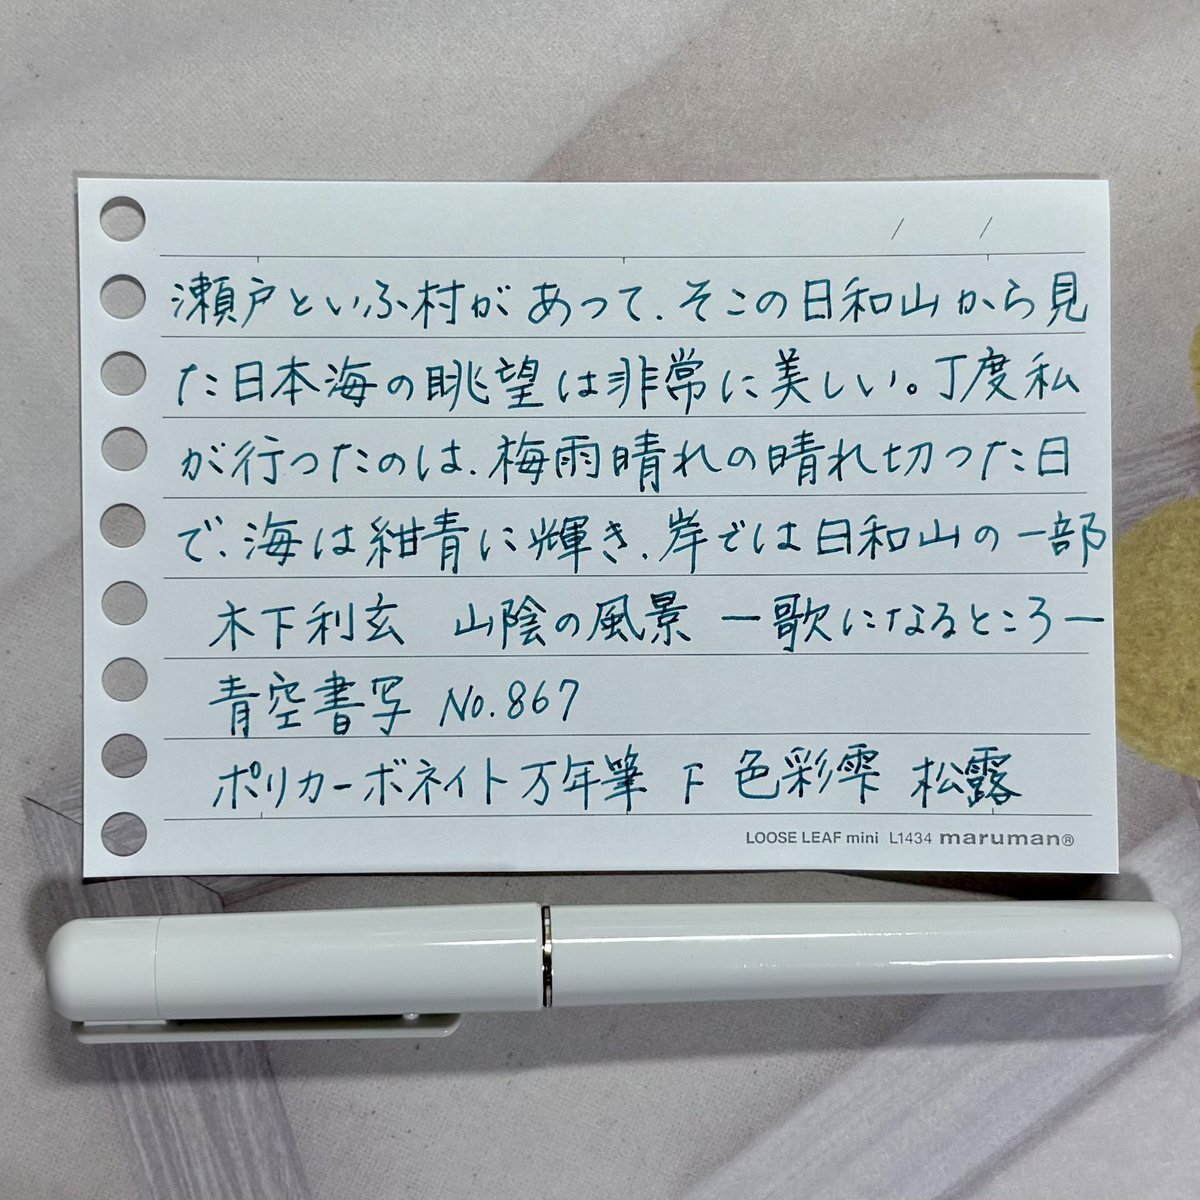 / /
瀬戸といふ村があって、そこの日和山から見
た日本海の眺望は非常に美しい。丁度私
が行つたのは、梅雨晴れの晴れ切つた日
で、海は紺青に輝き、岸では日和山の一部
木下利玄 山陰の風景 ー歌になるところー
青空書写 No.867
ポリカーボネイト万年筆 F 色彩雫 松露
LOOSE LEAF mini L1434 maruman®